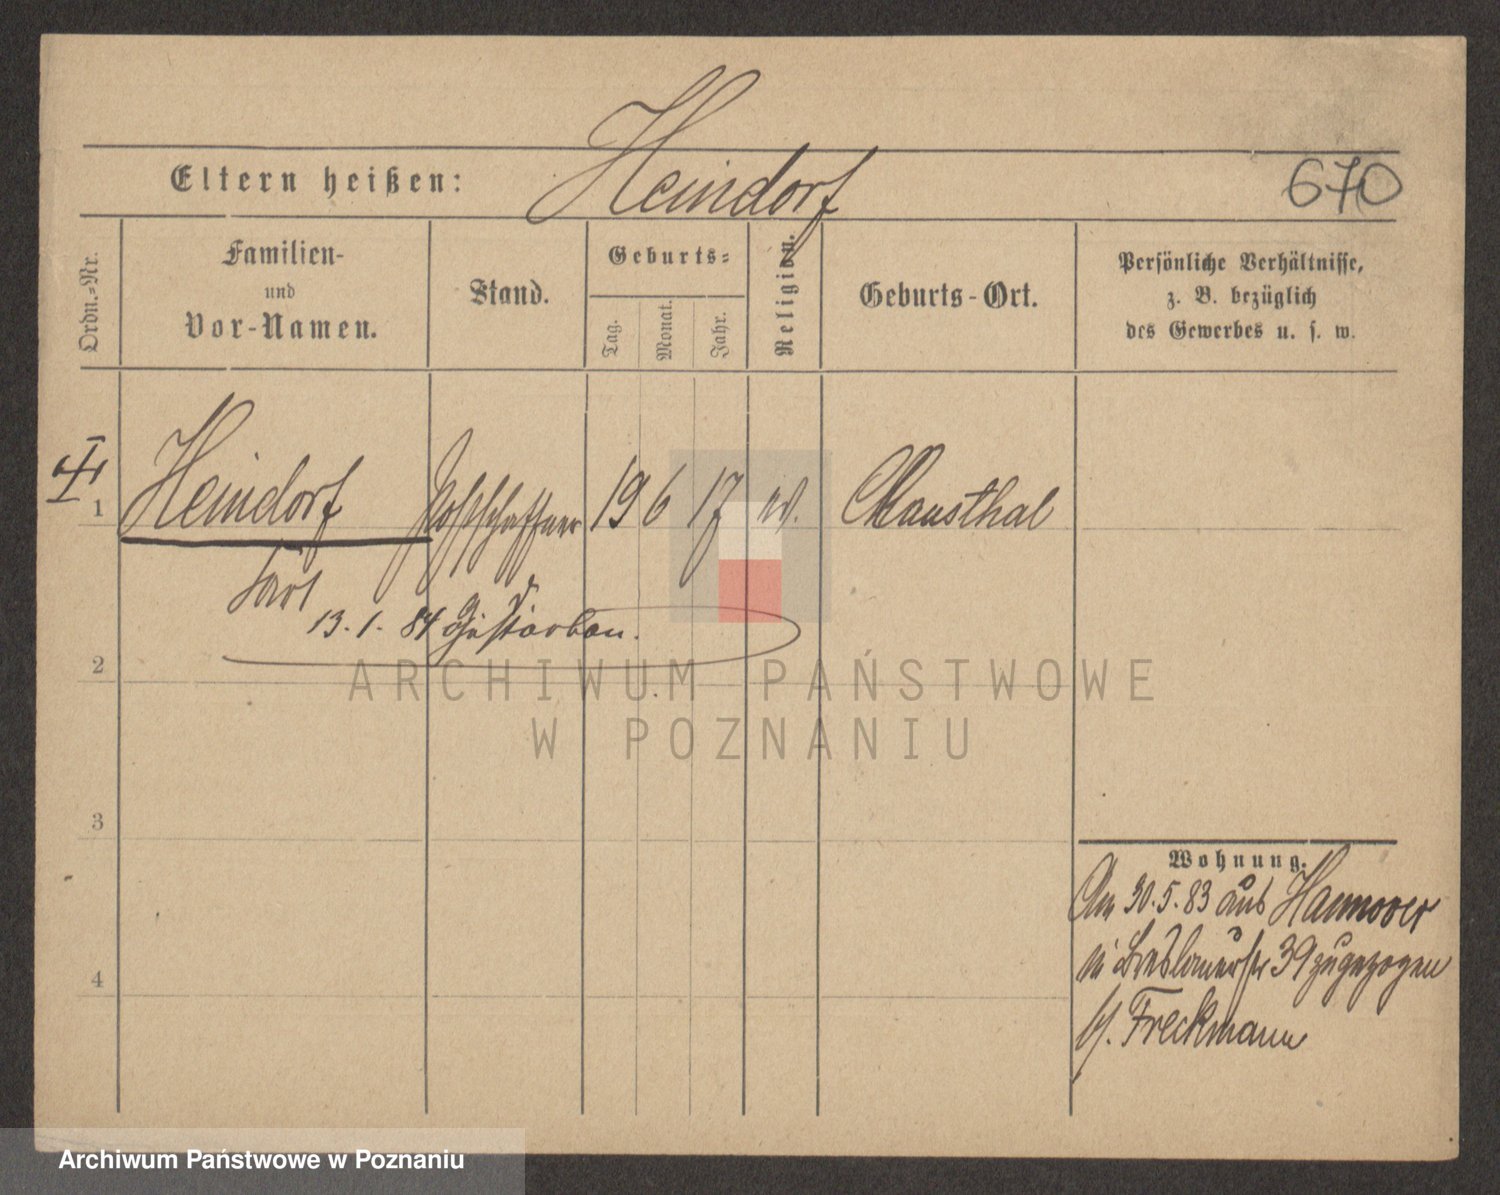 Heindorf
Eltern heißen:
670
Ordn.-Nr.
Familien-
und
Vor-Namen.
Stand.
Geburts-
Tag.
Monat.
Jahr.
Religion.
Geburts-Ort.
Persönliche Verhältnisse,
z. B. bezüglich
des Gewerbes u. s. w.
1 Heindorf Postschaffner 19 6 17 ev. Clausthal
Karl
13. 1. 84 gestorben.
2
3
4
Wohnung.
Am 30.5.83 aus Hannover
in Breslauerstr 39 zugezogen
b/. Freckmann
ARCHIWUM PAŃSTWOWE
W POZNANIU
Archiwum Państwowe w Poznaniu